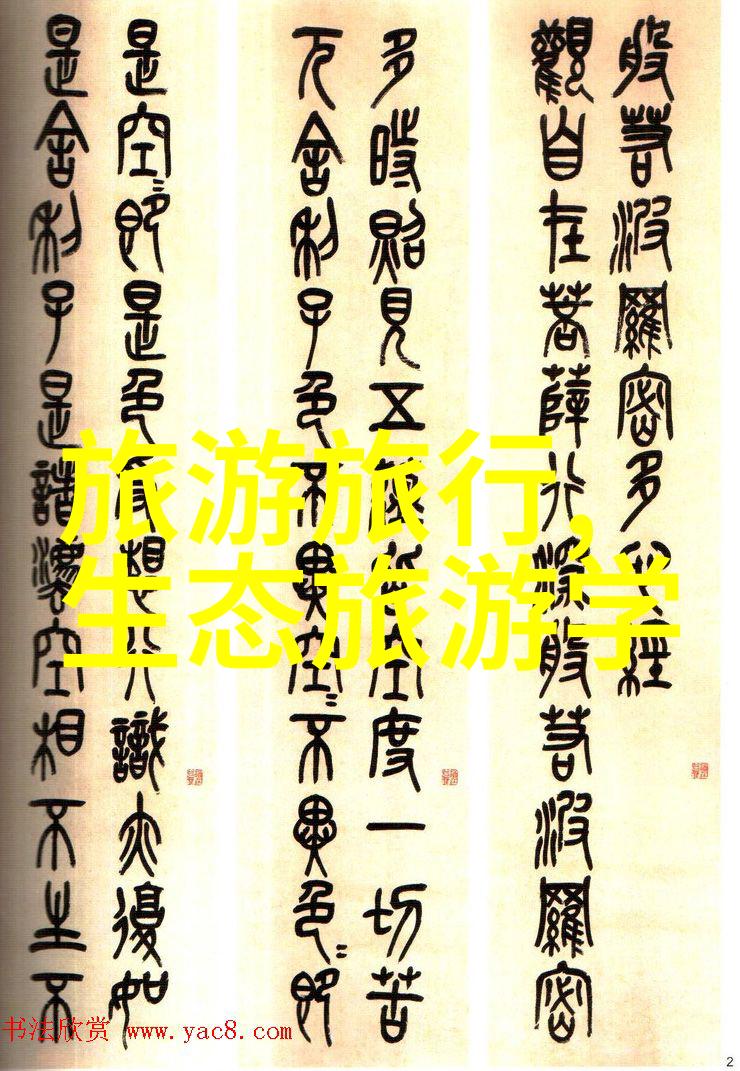 般若波羅密多心經
觀自在菩薩行深般若波羅密
多時照見五蘊皆空度一切苦
厄舍利子色不異空〻不異色〻即
是空〻即是色受想行識亦復如
是舍利子是諸灋空相不生不
旅游旅行,
生态旅游学
书法欣赏 www.yac8.com
2